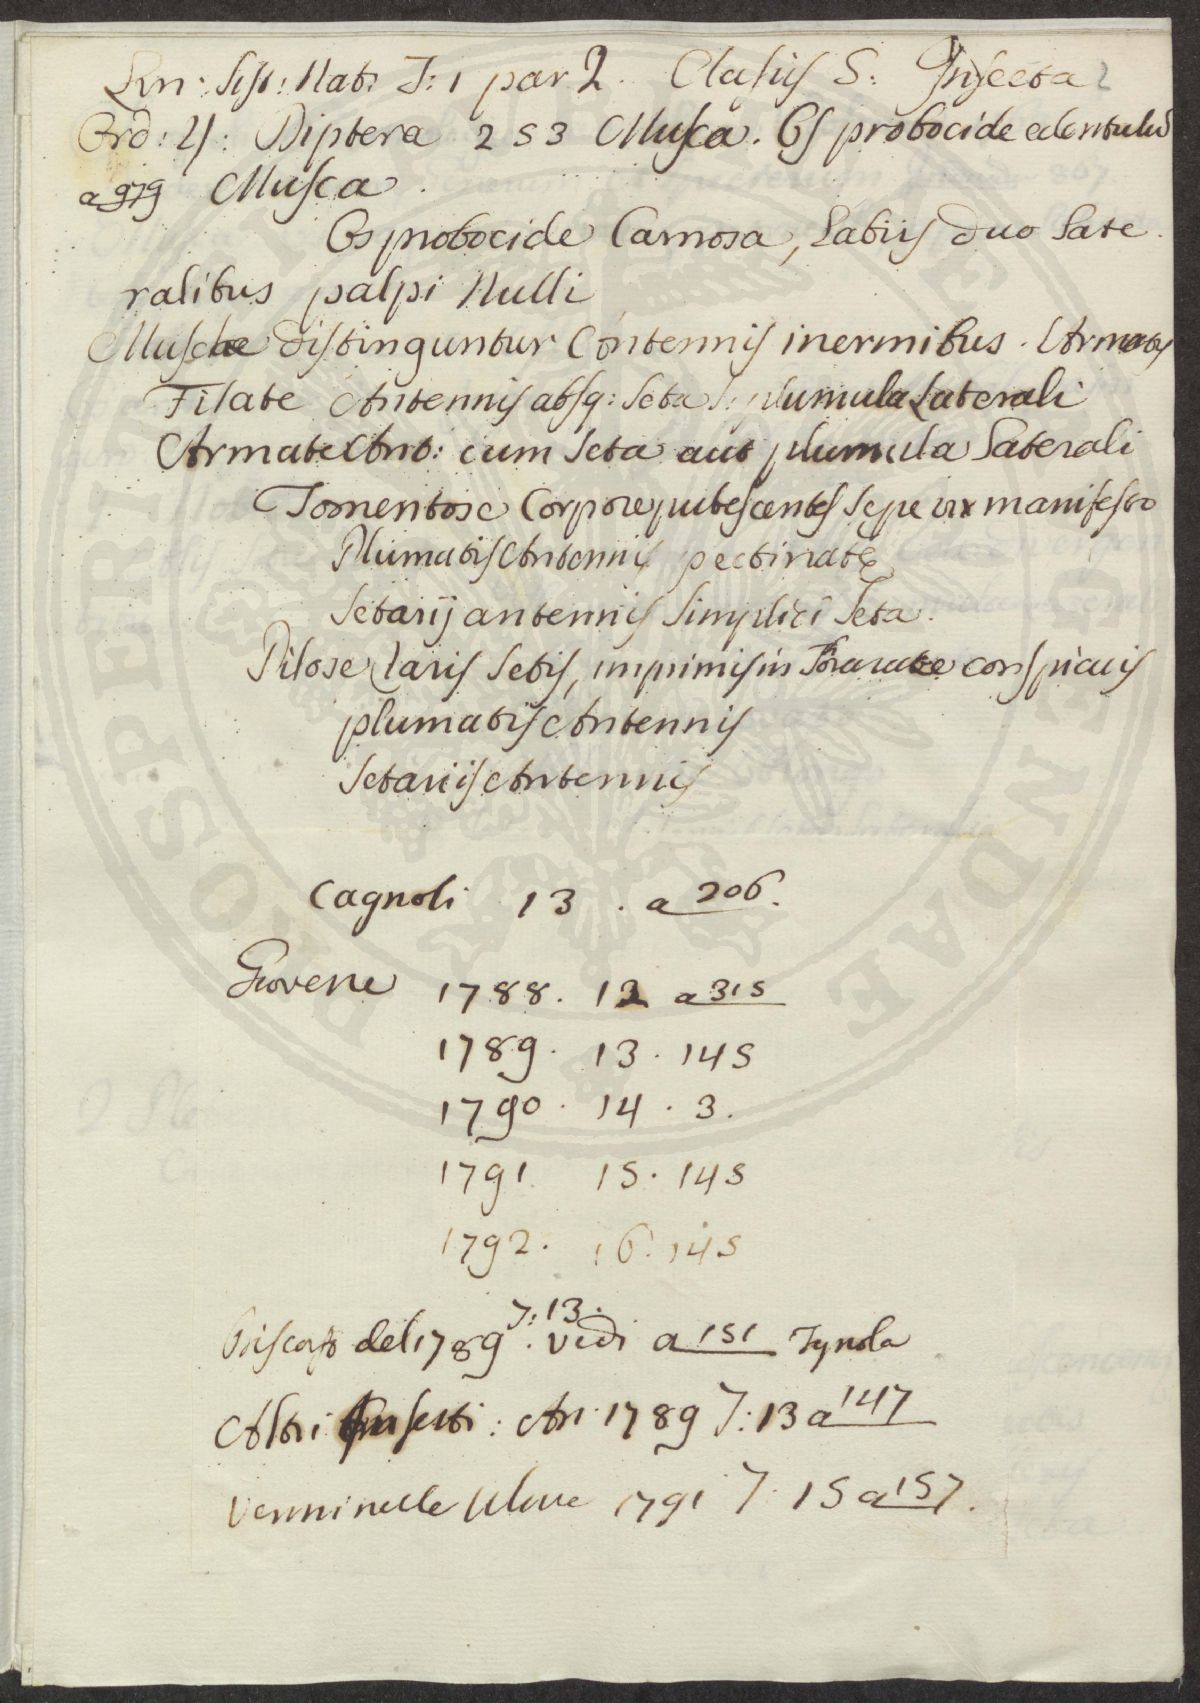 Lin: Sist: Nat: T: 1 par 2. Classis 5: Insecta 2
Ord: 4: Diptera 253 Musca. Os proboscide edentulu
a 979 Musca.
Os probocide Carnosa, Labiis duo Late
ralibus palpi Nulli
Musche distinguntur Antennis inermibus. Armatis
Filate Antennis absq: seta s: plumula Laterali
Armate Ant: cum seta aut plumula Laterali
Tomentose Corpore pubescentes sepe vix manifesto
Plumatis Antennis pectinate
Setarij antennis simplici seta.
Pilose raris setis, imprimis in conspicuis
plumatis Antennis
Setariis Antennis
Cagnoli 13. a 206.
Giovene 1788. 12 a 315
1789. 13. 145
1790. 14. 3.
1791. 15. 145
1792. 16. 145
T: 13.
del 1789. vedi a 151 Tignola
Altri Insetti: An. 1789 T: 13 a 147
Verminelle Ulive 1791 T. 15 a 157.
PROSPERI LAGENDAE